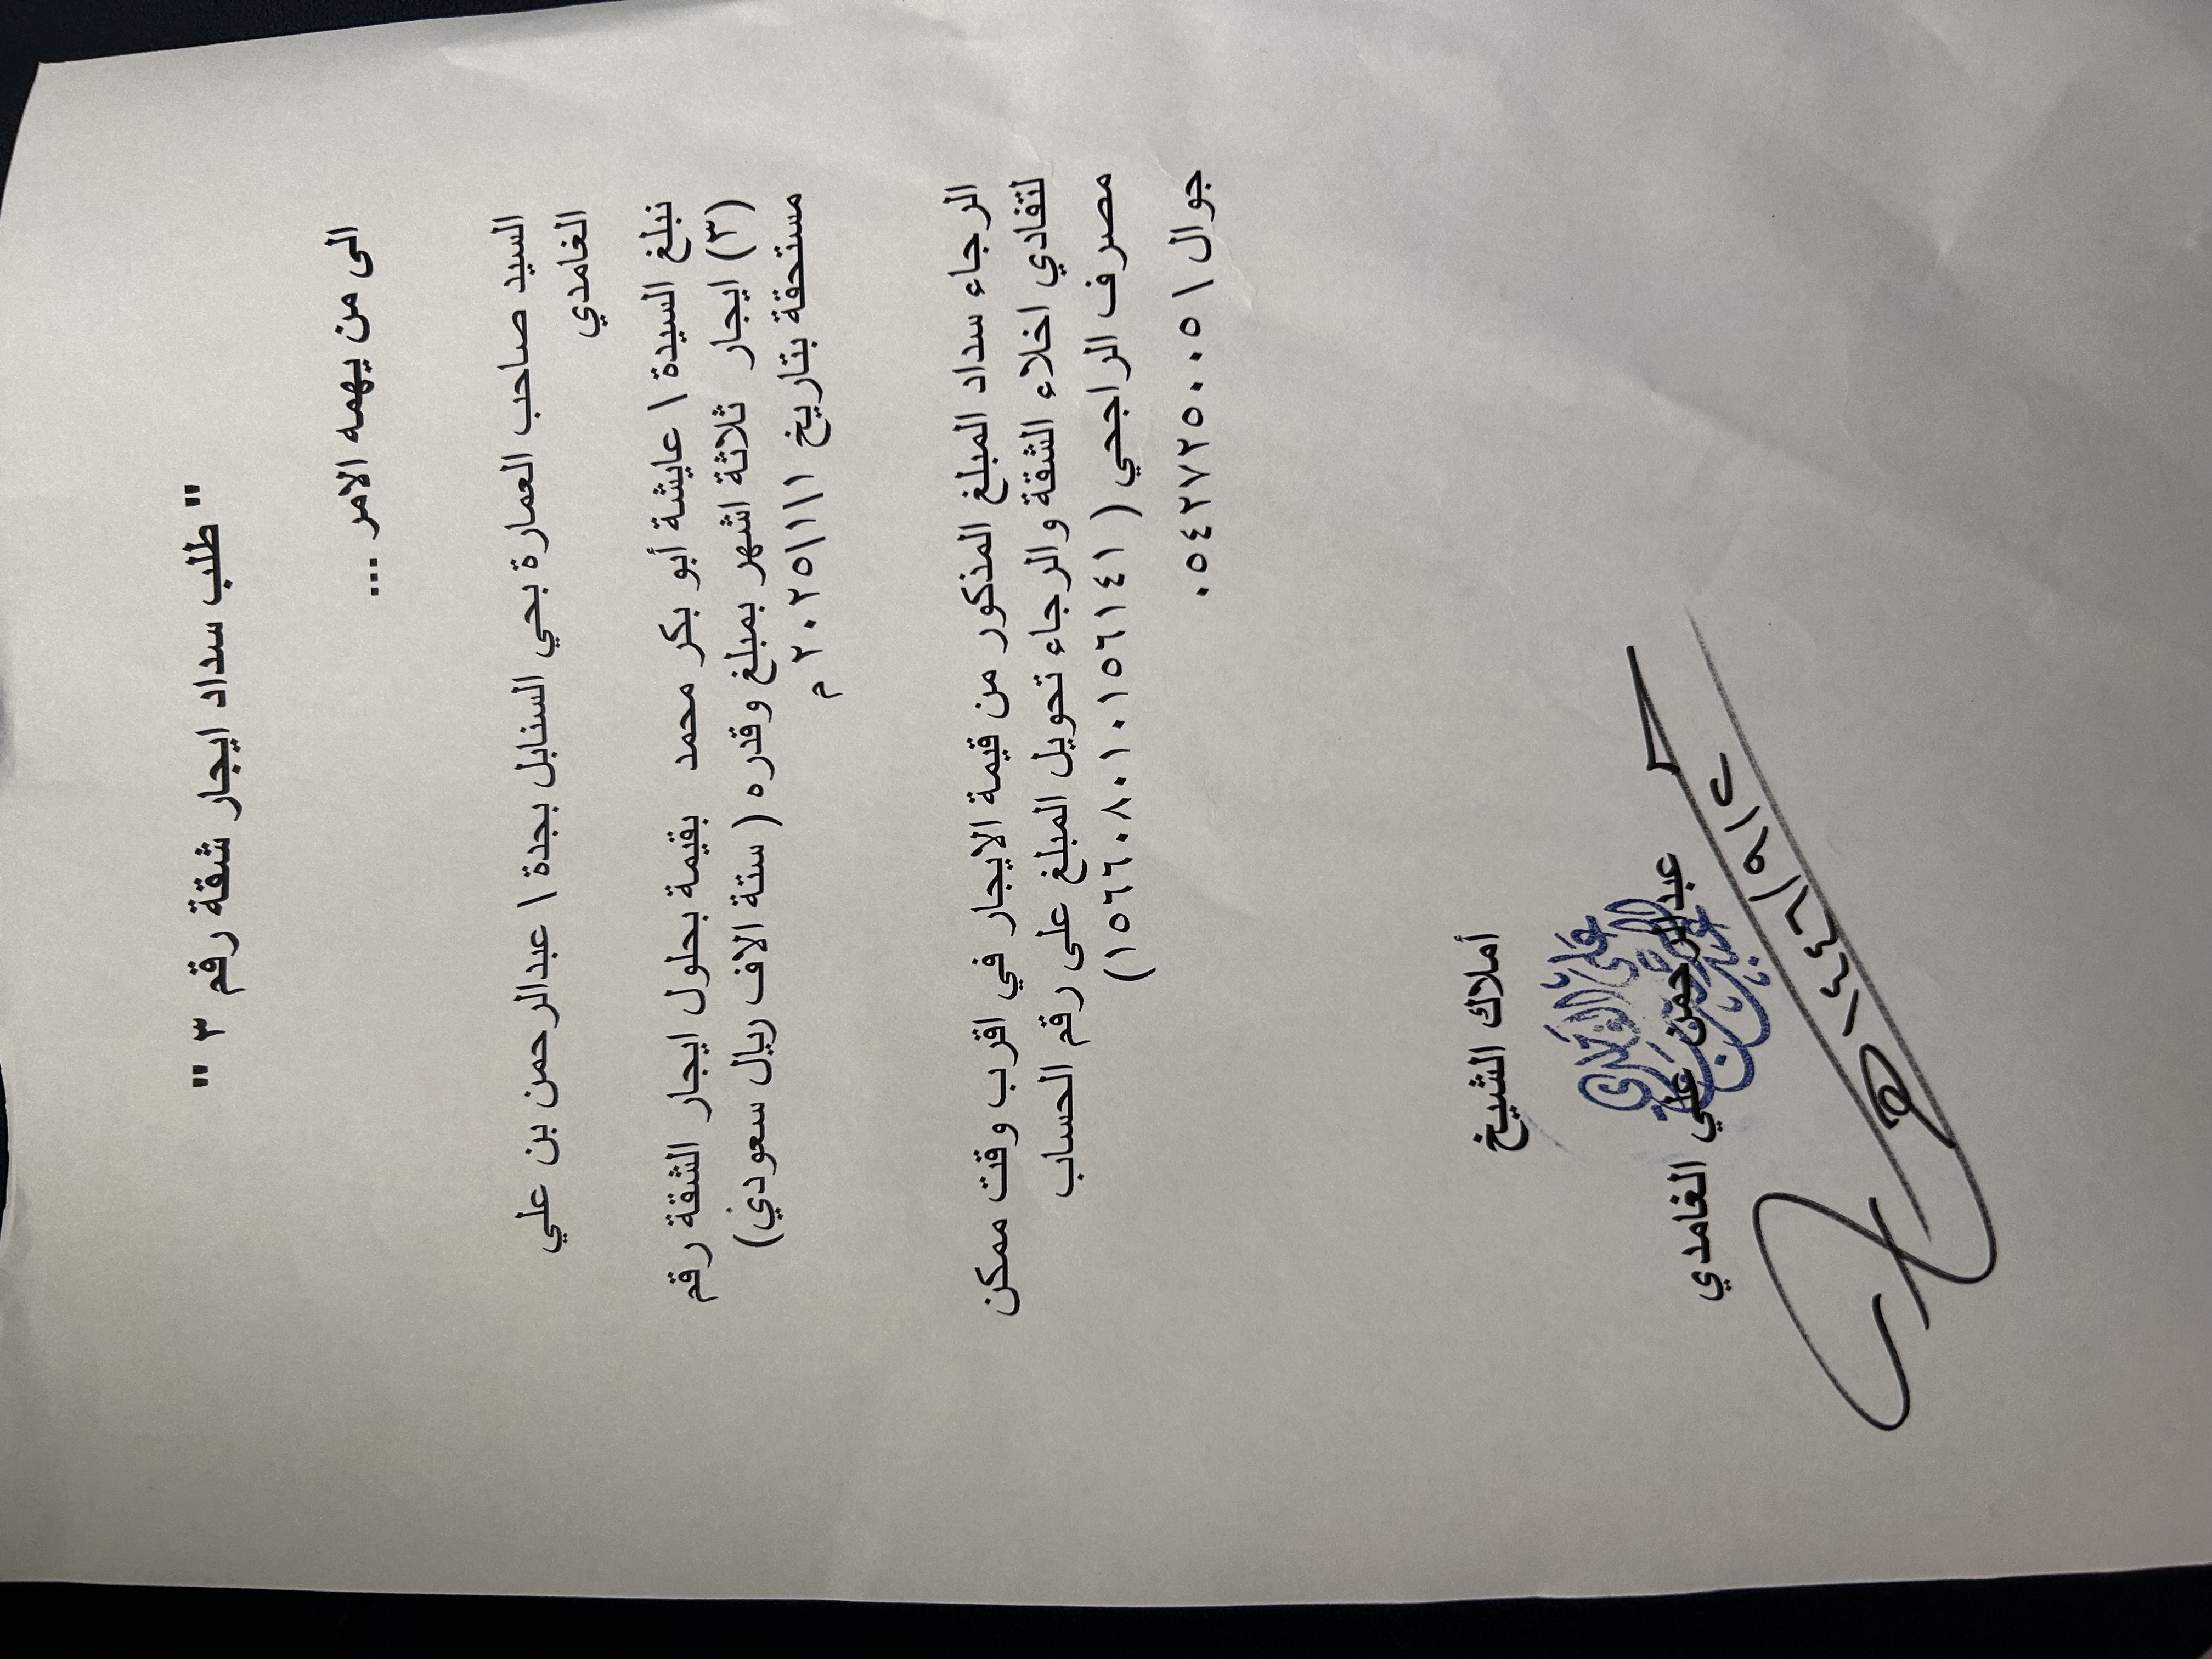 " طلب سداد ايجار شقة رقم ٣ "
الى من يهمه الامر ...
السيد صاحب العمارة بحي السنابل بجدة \ عبدالرحمن بن علي
الغامدي
نبلغ السيدة \ عايشة أبو بكر محمد بقيمة بحلول ايجار الشقة رقم
(٣) ايجار ثلاثة اشهر بمبلغ وقدره ( ستة الاف ريال سعودي)
مستحقة بتاريخ ١\١\٢٠٢٥ م
الرجاء سداد المبلغ المذكور من قيمة الايجار في اقرب وقت ممكن
لتفادي اخلاء الشقة والرجاء تحويل المبلغ على رقم الحساب
مصرف الراجحي ( ١٥٦٦٠٨٠١٠١٥٦١٤١)
جوال \ ٠٥٤٢٧٢٥٠٠٥
أملاك الشيخ
عبدالرحمن علي الغامدي